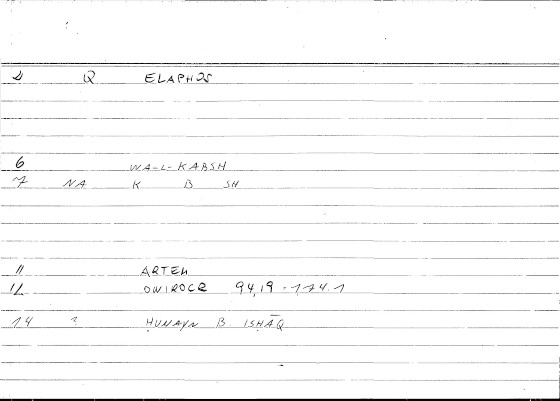 Q ELAPHOS
6 WA-L-KABSH
7 NA K B SH
11 ARTEM
12 ONIROCR 94,19 - 174.1
14 ? ḤUNAYN B. ISḤĀQ